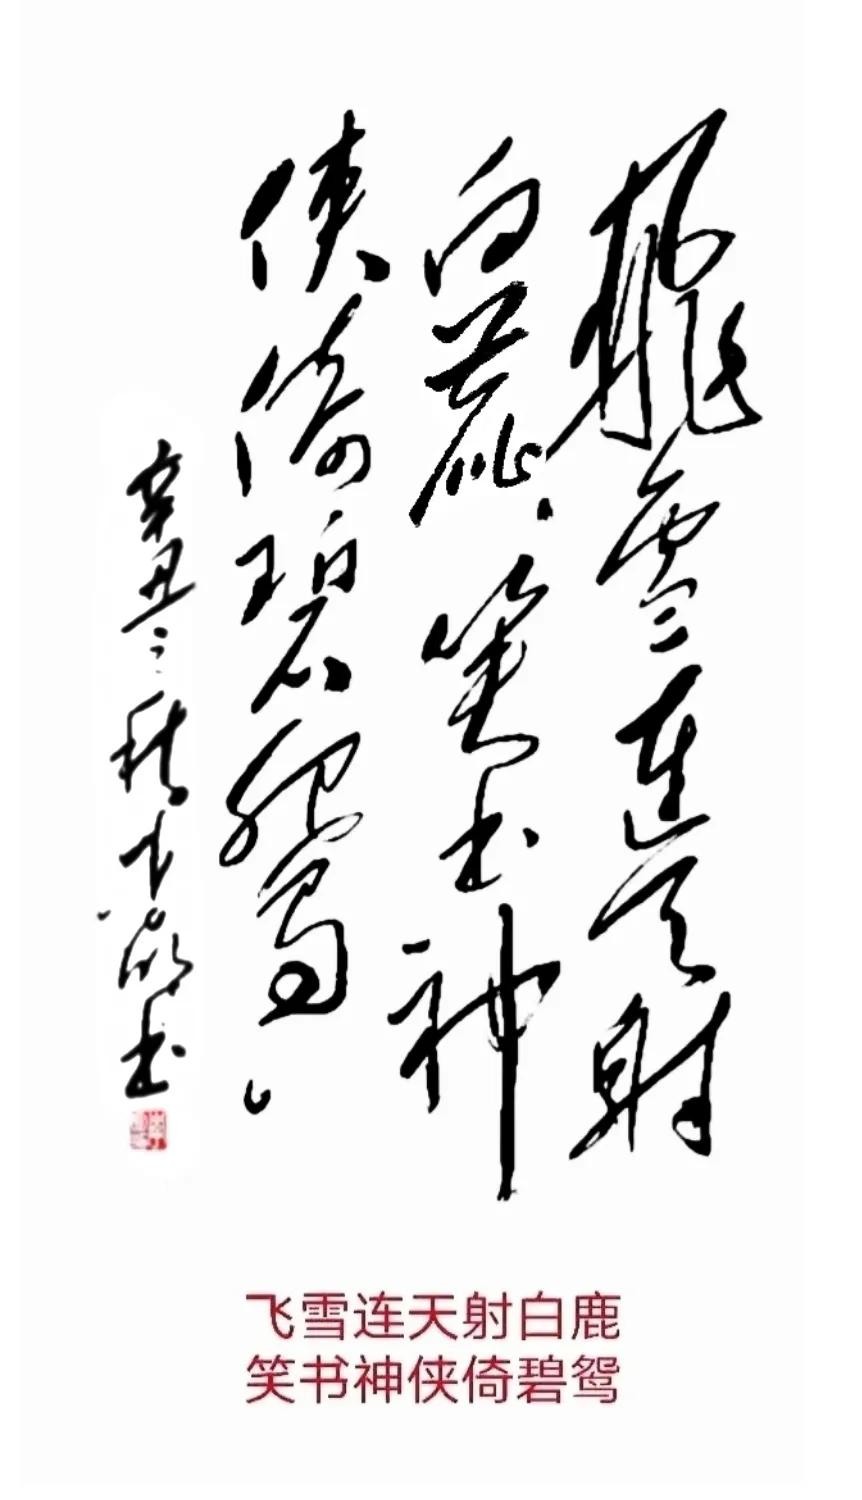 飛雪連天射
白鹿笑书神
侠倚碧鸳
辛丑之秋
书
飞雪连天射白鹿
笑书神侠倚碧鸳